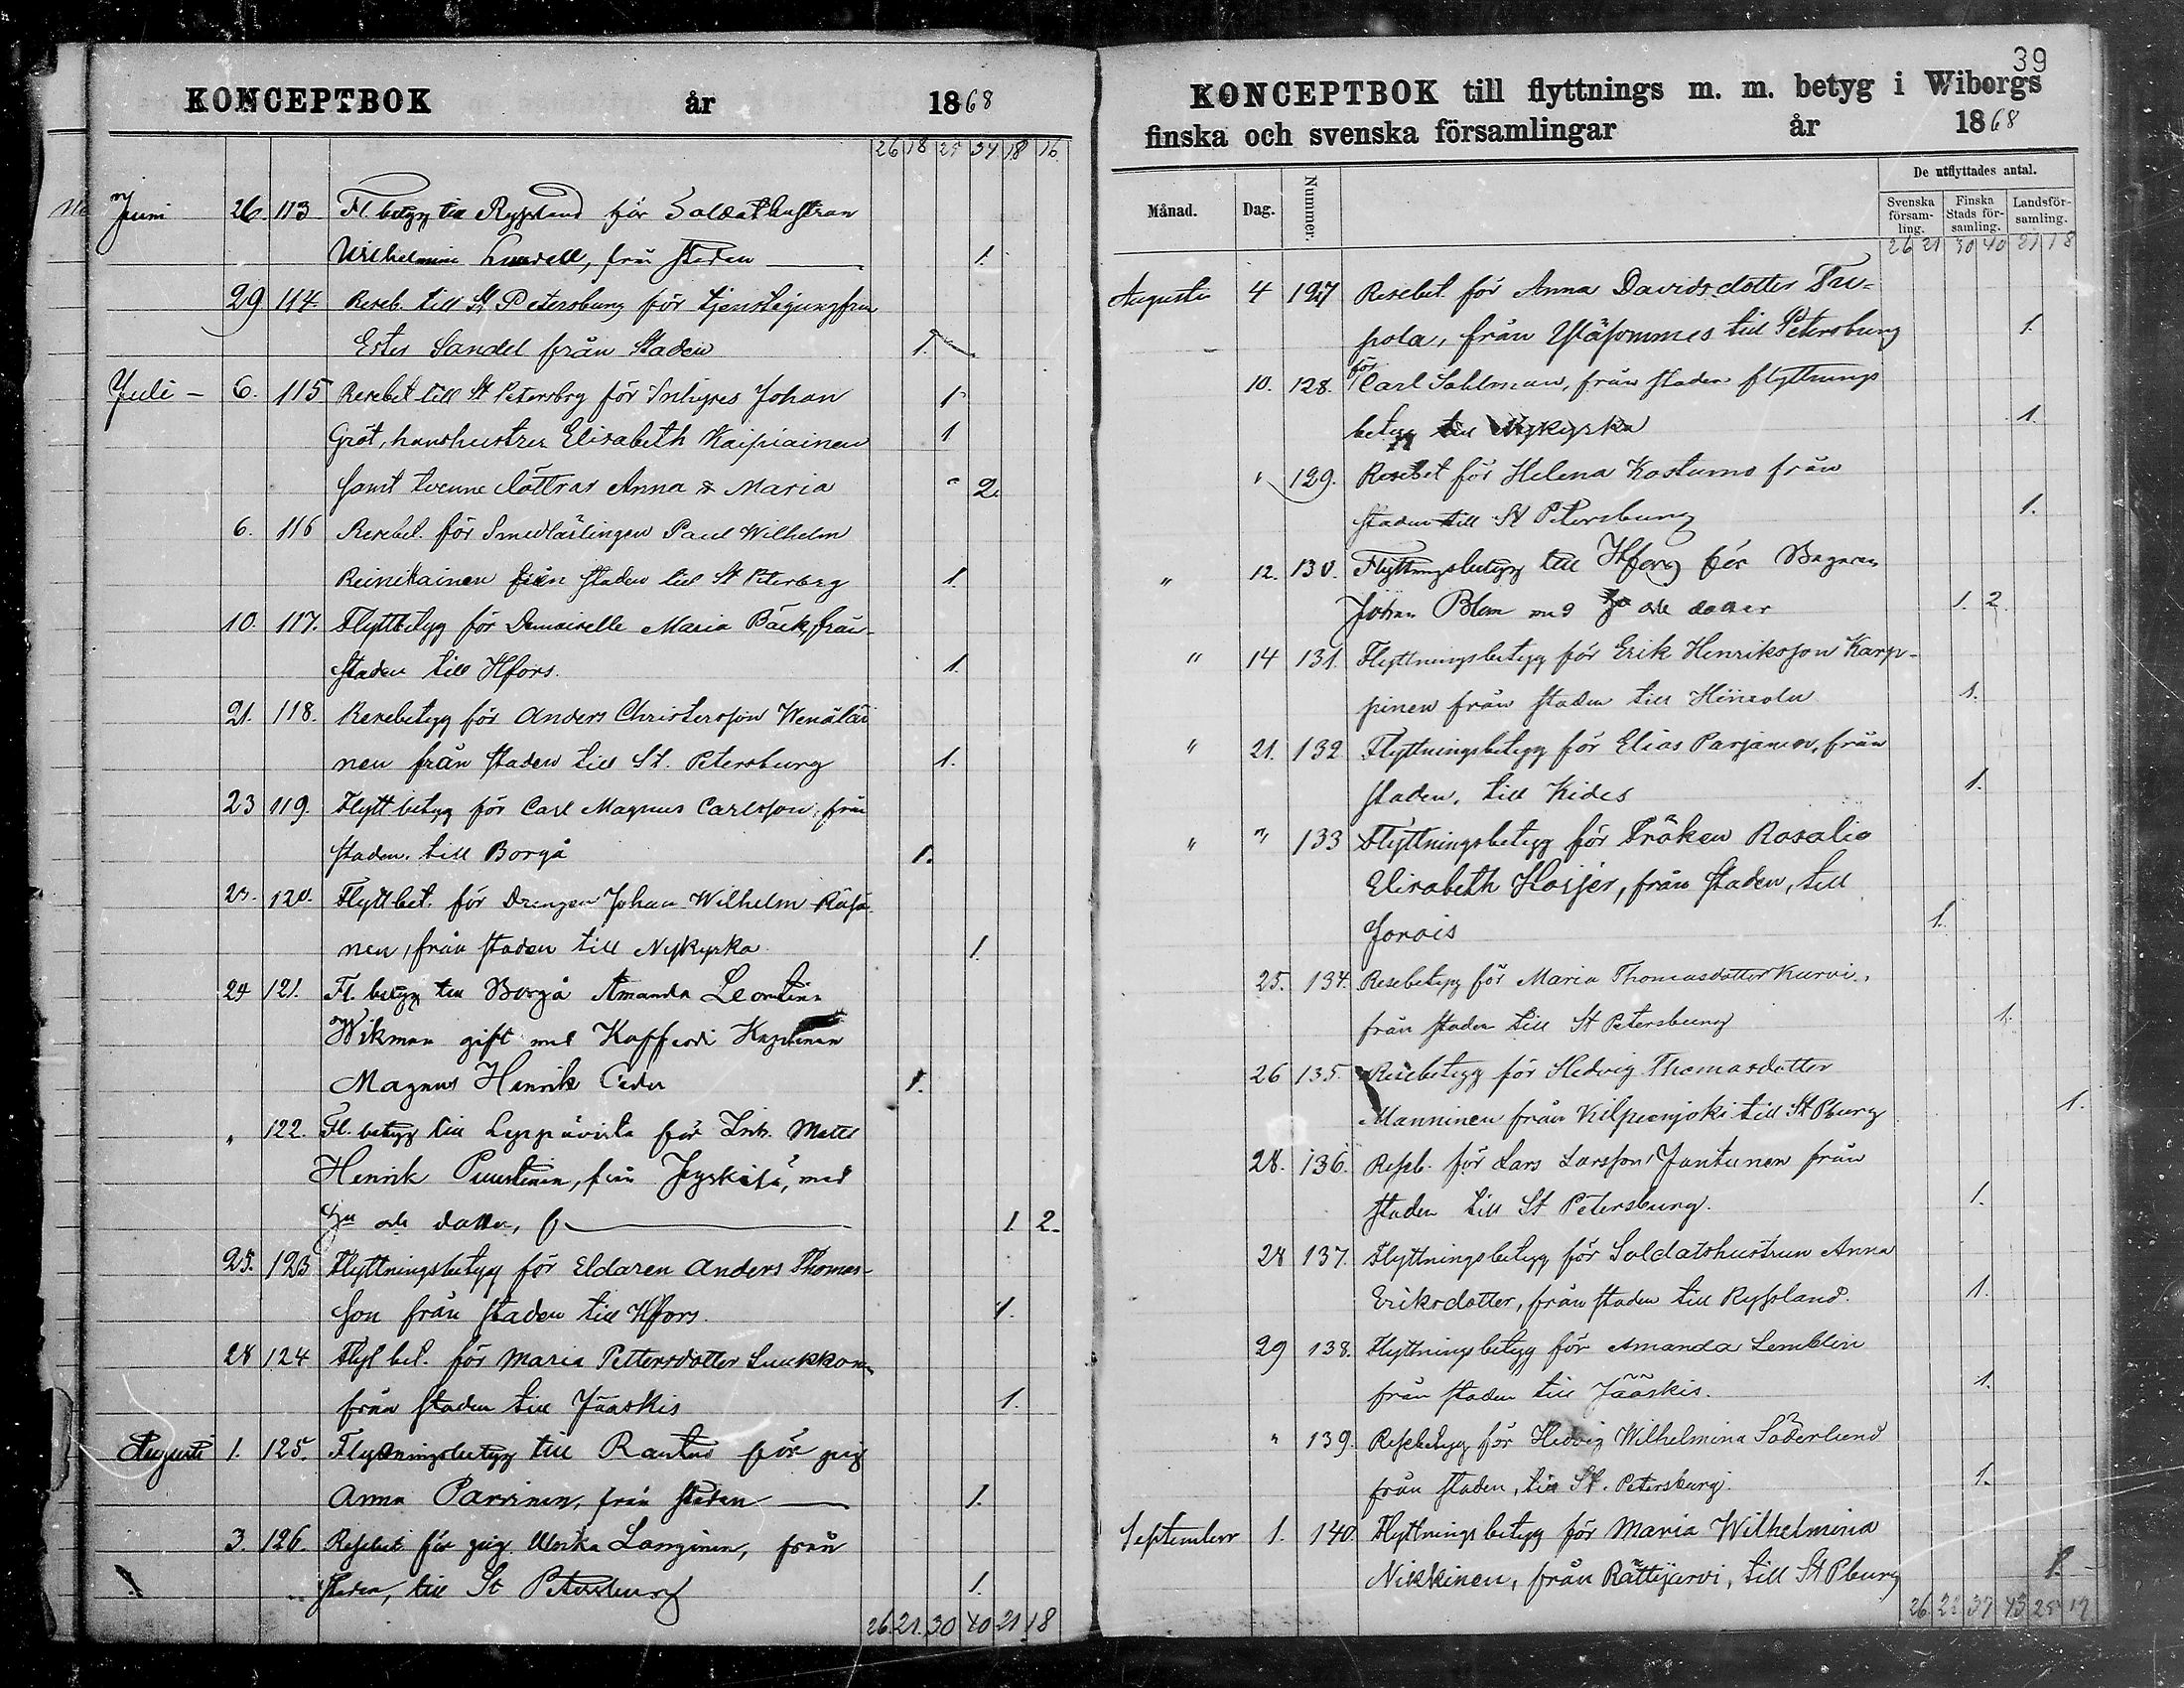 KONCEPTBOK år 1868
26 18 25 37 18 16
Juni 26 113 Fl. betyg till Ryssland för Soldathustrun
Wilhelmina Lundell, från staden 1.
29 114. Reseb. till St Petersburg för tjenstejungfrun
Ester Sandel från Staden 1.
Juli - 6. 115 Resebet till St Petersbrg för Inhyses Johan 1
Gröt, hans hustru Elisabeth Kaipiainen 1
samt tvenne döttrar Anna & Maria " 2.
6. 116 Resebet. för Smedlärlingen Paul Wilhelm
Reinikainen från staden till St Petersbrg 1.
10. 117. Flyttbetyg för Demoiselle Maria Bäck, från
staden till Hfors. 1.
21. 118. Resebetyg för Anders Christersson Wenäläi
nen från staden till St. Petersburg 1.
23 119. Flyttbetyg för Carl Magnus Carlsson, från
staden. till Borgå 1.
23. 120. Flyttbet. för Drengen Johan Wilhelm Räsä
nen, från staden till Nykyrka 1.
24 121. Fl. betyg till Borgå Amanda Leontina
Wikman gift med Kofferdi Kaptenen
Magnus Henrik Ceder 1.
" 122. Fl. betyg till Leppävirta för Matts
Henrik Puustinen, från Jyskälä, med
hu och dotter, 1. 2.
25. 123 Flyttningsbetyg för Eldaren Anders Thomas-
son från staden till Hfors. 1.
28 124 Flyt bet. för Maria Pettersdotter Luukkonen
från staden till Jääskis 1.
Augusti 1. 125. Flyttningsbetyg till Rautus för pig
Anna Parvinen, från staden 1.
3. 126. Resebet för pig Ulrika Langinen, från
staden, till St Petersburg 1.
26. 21. 30 40 21 18
39
KONCEPTBOK till flyttnings m. m. betyg i Wiborgs
finska och svenska församlingar år 1868
Månad. Dag. Nummer. De utflyttades antal.
Svenska församling. Finska Stads församling. Landsförsamling.
26 21 30 40 21 18
Augusti 4 127 Resebet för Anna Davidsdotter
pola, från Yläsommes till Petersburg 1.
10. 128. för Carl Sahlman, från staden flyttnings
betyg till Nykyrka 1.
" 129. Resebet för Helena Kostumo från
staden till St Petersburg 1.
" 12. 130. Flyttningsbetyg till Hfors för Bagaren
Johan Blom med hu och dotter 1. 2.
" 14 131. Flyttningsbetyg för Erik Henriksson Karp-
pinen från staden till Hiitola 1.
" 21. 132 Flyttningsbetyg för Elias Parjanen, från
staden, till Kides 1.
" " 133 Flyttningsbetyg för Fröken Rosalie
Elisabeth Hoijer, från staden, till
Jorois 1.
25. 134. Resebetyg för Maria Thomasdotter Kurvi.,
från staden till St Petersburg 1.
26 135. Resebetyg för Hedvig Thomasdotter
Manninen från Kilpeenjoki till St Pburg 1.
28. 136. Reseb. för Lars Larsson Jantunen från
staden till St Petersburg. 1.
28 137. Flyttningsbetyg för Soldatshustrun Anna
Eriksdotter, från staden till Ryssland. 1.
29 138. Flyttningsbetyg för Amanda Lemblin
från staden till Jääskis. 1.
" 139. Resebetyg för Hedvig Wilhelmina Söderlund
från staden, till St. Petersburg. 1.
September 1. 140. Flyttningsbetyg för Maria Wilhelmina
Nikkinen, från Rättijärvi, till St Pburg 1.
26. 22 37 43 25 19